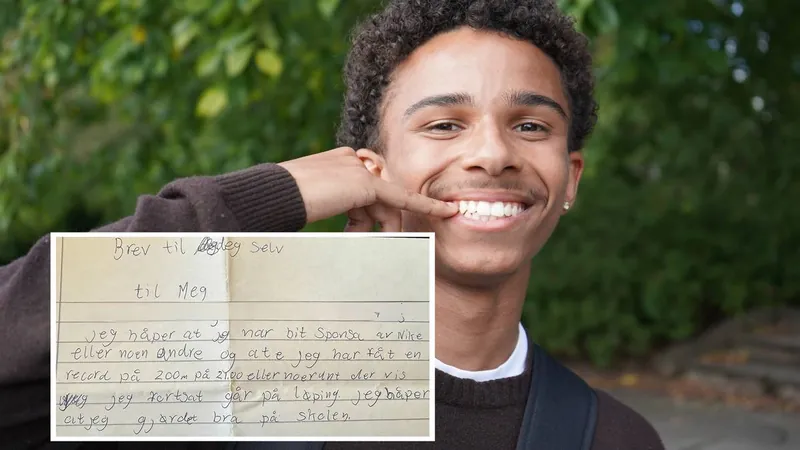 Brev til deg selv
til Meg
jeg håper at jeg har bit Sponsa av Nike
eller noen andre og at e jeg har fåt en
record på 200m på 21.00 eller noe runt der vis
jeg fortsat går på løping jeg håper
at jeg gjørdet bra på skolen.